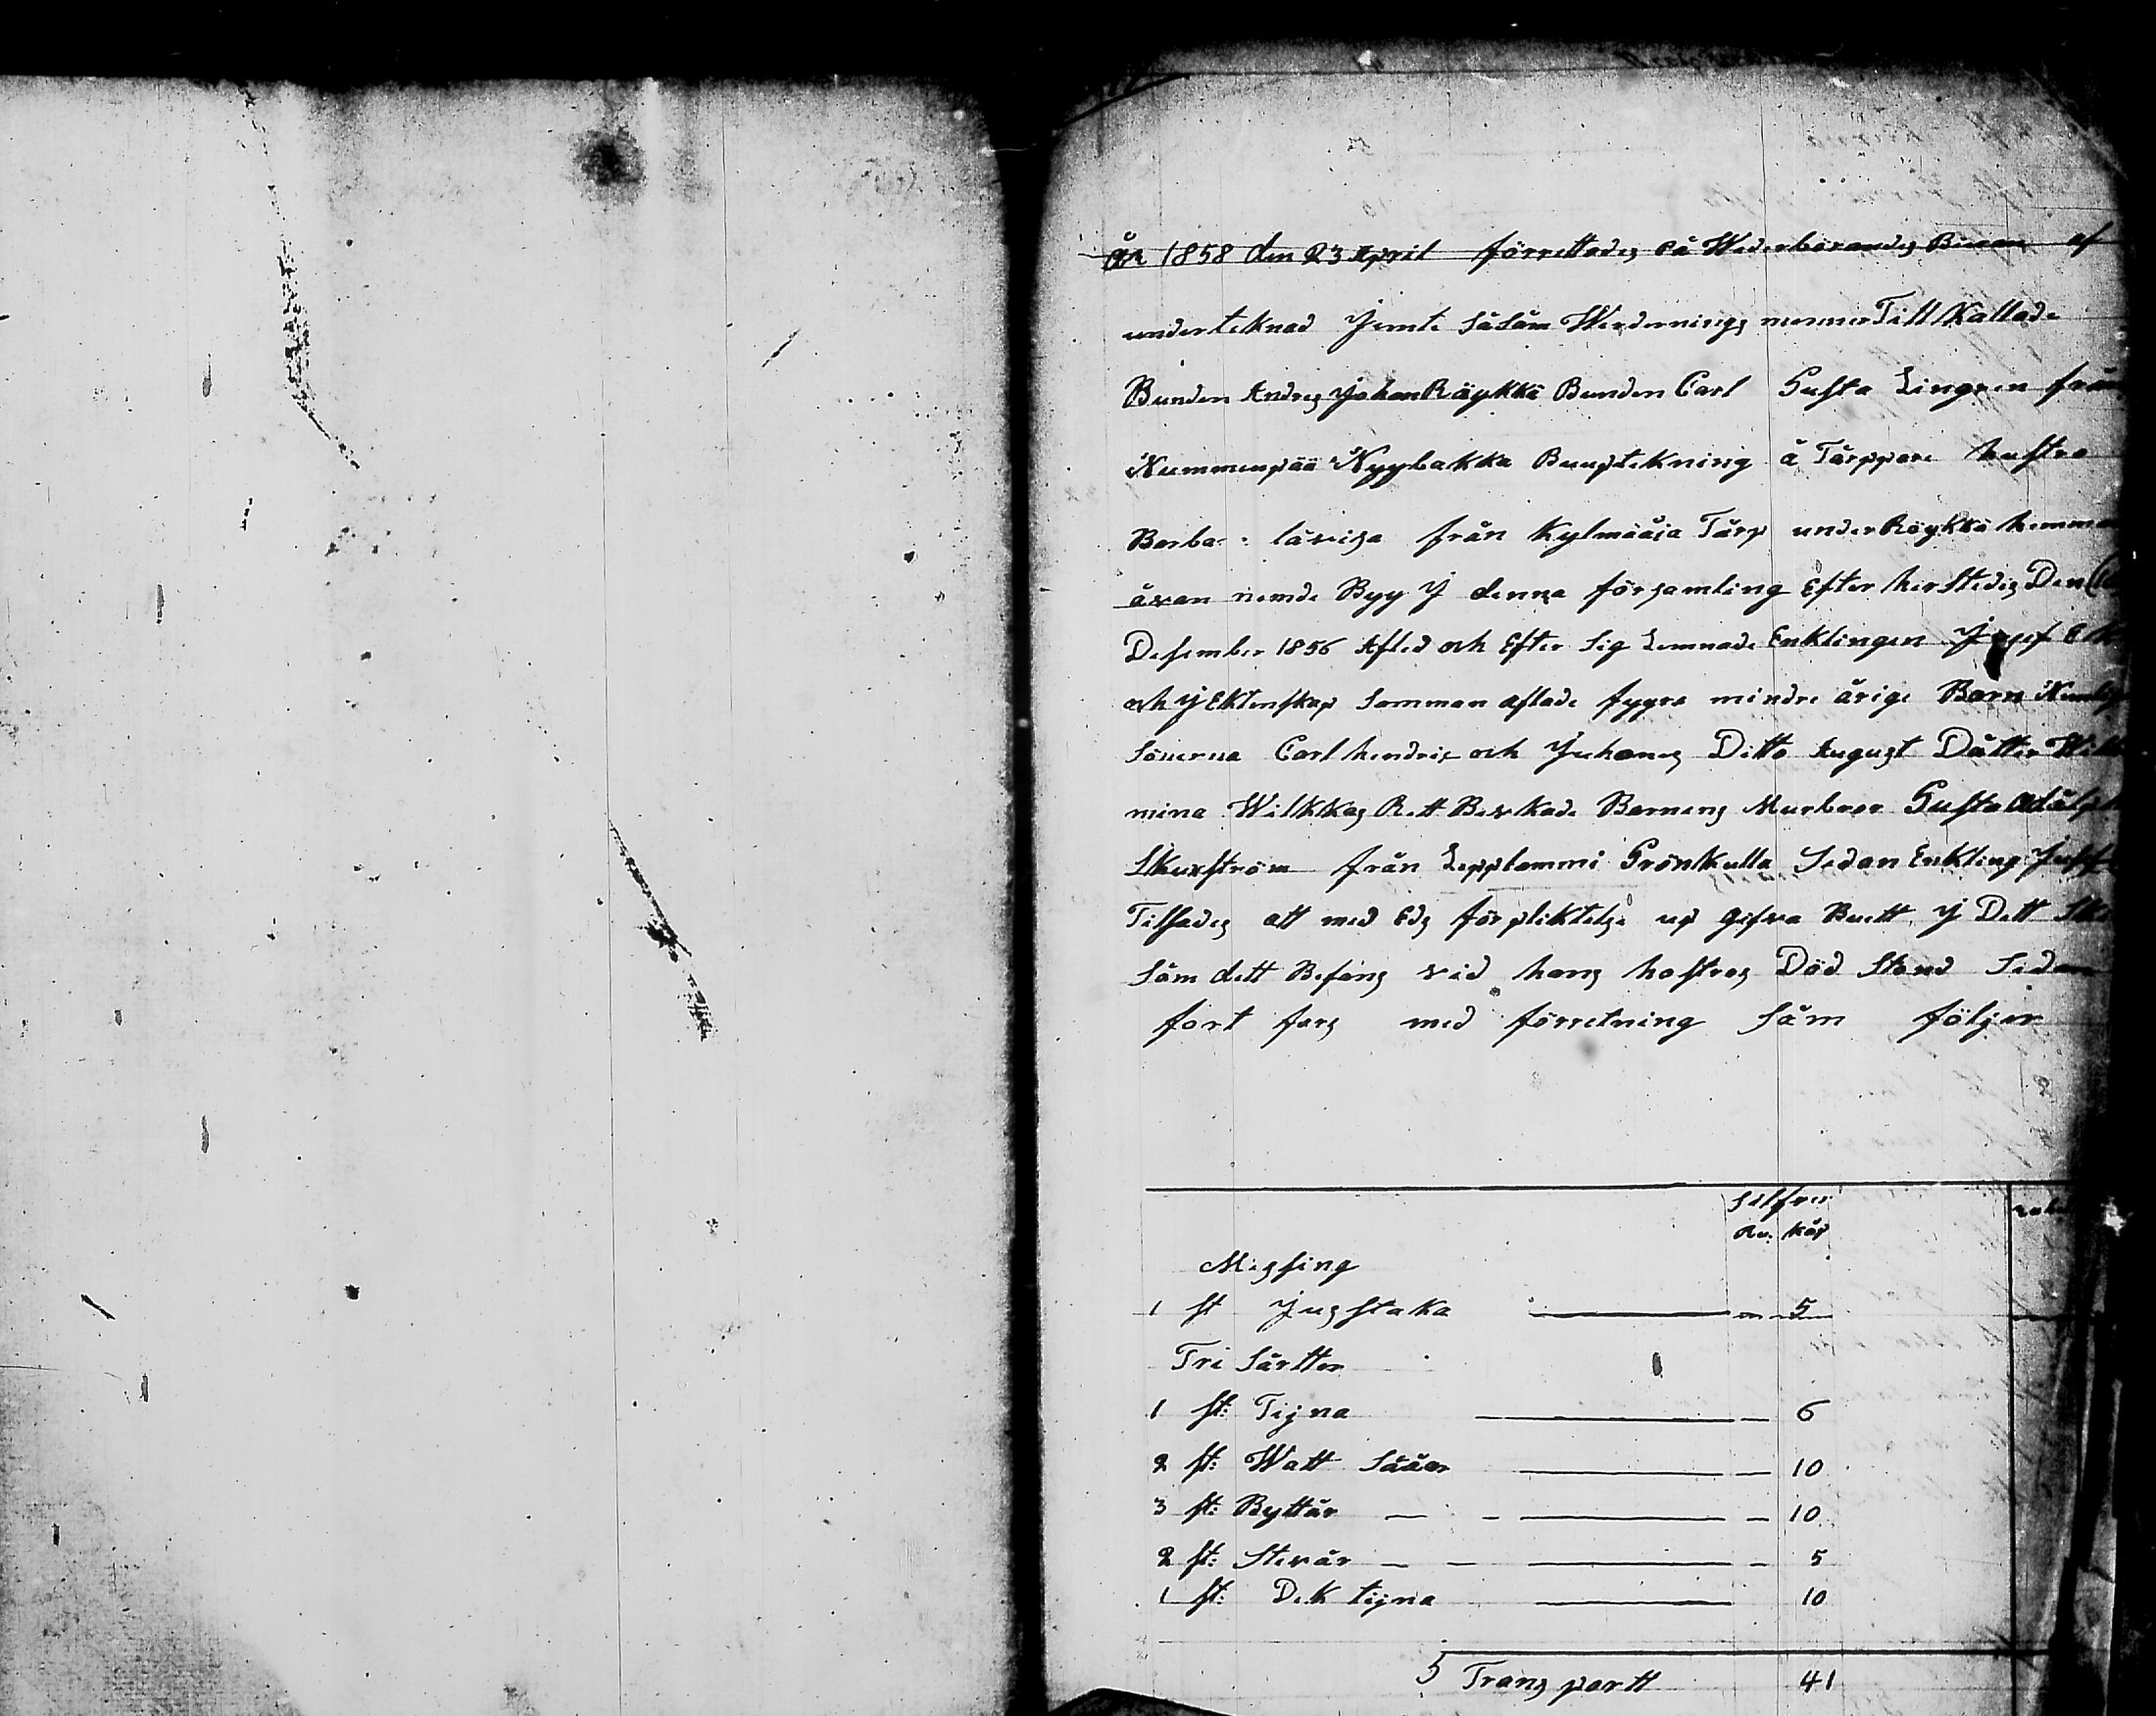 År 1858 den 23 April förrettades På Wederbörandes Biean af
underteknad Jemte Såsåm Werdernings menner Till Kallade
Bunden Andres Johan Röykkä Bunden Carl Gusta Lingren från
Nummenpää Nyybakka Buuptekning å Tårppare hustro
Barba: låvisa från Kylmäåja Tårp under Röykkä hemman
åvan nemde Byy J denna församling Efter her Stedes Den
Desember 1856 Afled och Efter Sig Lemnade Enklingen Josef
och J Ektenskap Samman aflade fyyra mindre årige Barn
Sönerna Carl hendric och Juhanes Ditto August Dåtter Wilhel
mina Wilkkas Rett Bevkade Barnens Murbror Gusta Adålph
Skuxström från Lepplammi Grönkulla Sedan Enkling
Tilsades att med Eds förpliktelse up gifva Buett J Dett
Såm dett Befans vid hans hostros Död Stånd Sedan
fort fors med förretning Såm följer
Silfver
Ru. kåp
Missing
1 st Jusstaka 5
Tri Sårtter
1 st: Tijna 6
2 st: Watt Sååar 10
3 st: Byttår 10
2 st: Stevår 5
1 st: Dek tijna 10
Trans partt 41